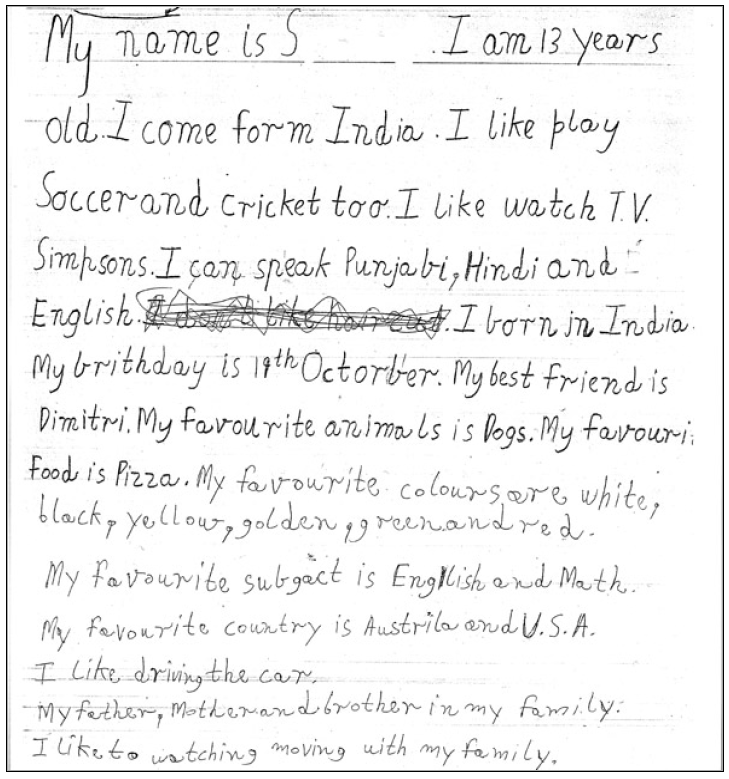 My name is S I am 13 years
old. I come form India. I like play
Soccer and cricket too. I like watch T.V.
Simpsons. I can speak Punjabi, Hindi and
English. I don't like haircut. I born in India.
My brithday is 19th Octorber. My best friend is
Dimitri. My favourite animals is Dogs. My favouri
Food is Pizza. My favourite colours are white,
black, yellow, golden, green and red.
My favourite subgact is English and Math.
My favourite country is Austrila and U.S.A.
I like driving the car.
My father, Mother and brother in my family.
I like to watching moving with my family.